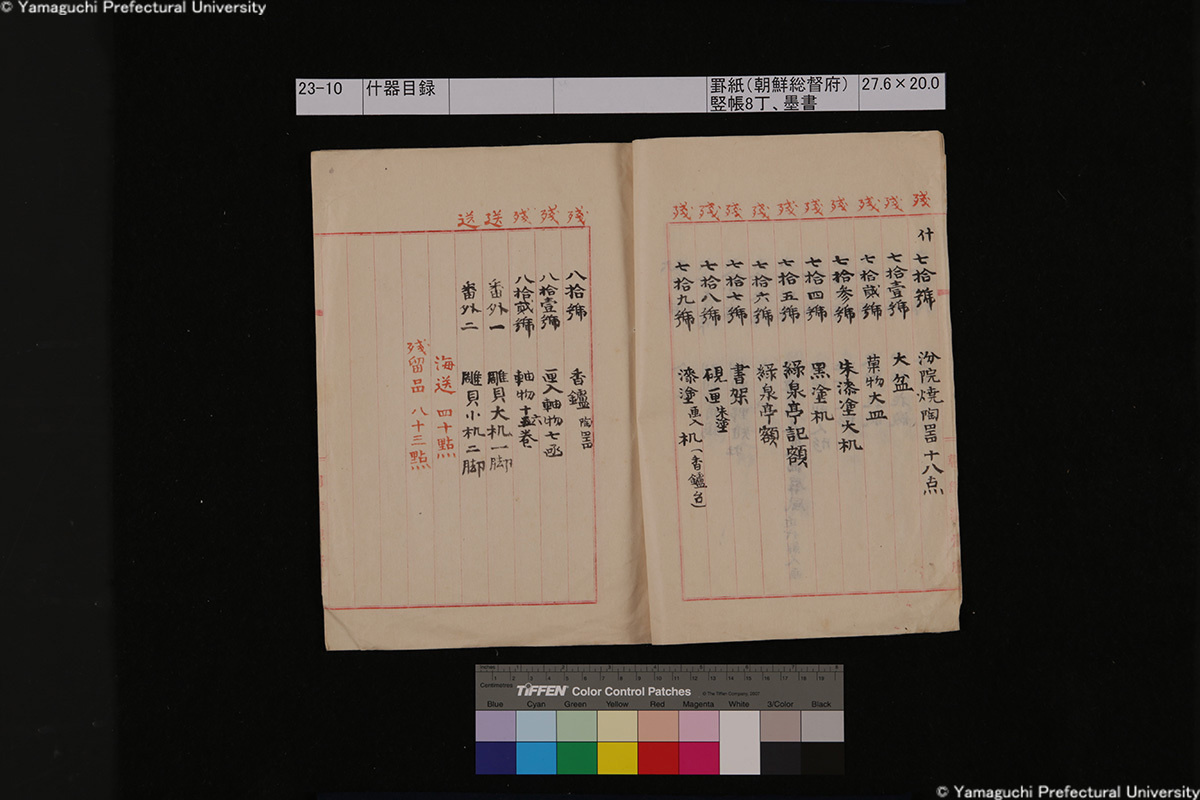 © Yamaguchi Prefectural University
23-10 什器目録 罫紙(朝鮮総督府) 27.6×20.0
竪帳8丁、墨書
残 什 七拾號 汾院焼陶器十八点
残 七拾壹號 大盆
残 七拾貳號 菓物大皿
残 七拾参號 朱漆塗大机
残 七拾四號 黒塗机
残 七拾五號 緑泉亭記額
残 七拾六號 緑泉亭額
残 七拾七號 書架
残 七拾八號 硯匣 朱塗
残 七拾九號 漆塗 匣入 机(香鑪台)
残 八拾號 香鑪 陶器
残 八拾壹號 匣入軸物七函
残 八拾貳號 軸物十六巻
送 番外一 雕貝大机一脚
送 番外二 雕貝小机二脚
海送 四十點
残留品 八十三點
inches 1 2 3 4 5 6 7 8
Centimetres 1 2 3 4 5 6 7 8 9 10 11 12 13 14 15 16 17 18 19
TIFFEN Color Control Patches © The Tiffen Company, 2007
Blue Cyan Green Yellow Red Magenta White 3/Color Black
© Yamaguchi Prefectural University